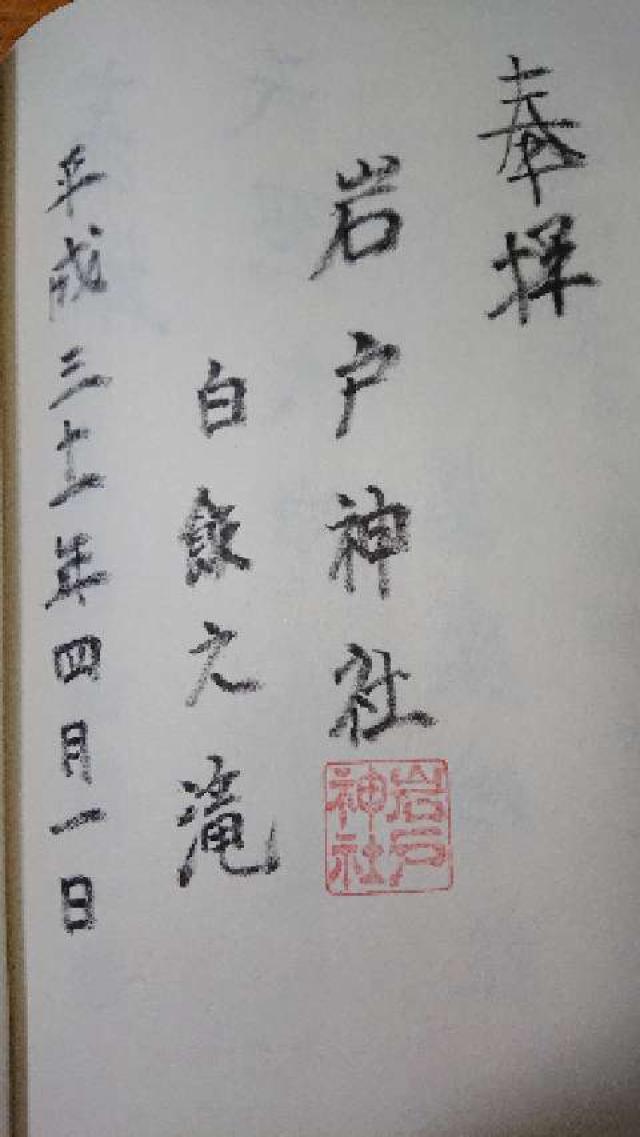 奉拝
岩戸神社
岩戸神社
白飯之滝
平成三十一年四月一日